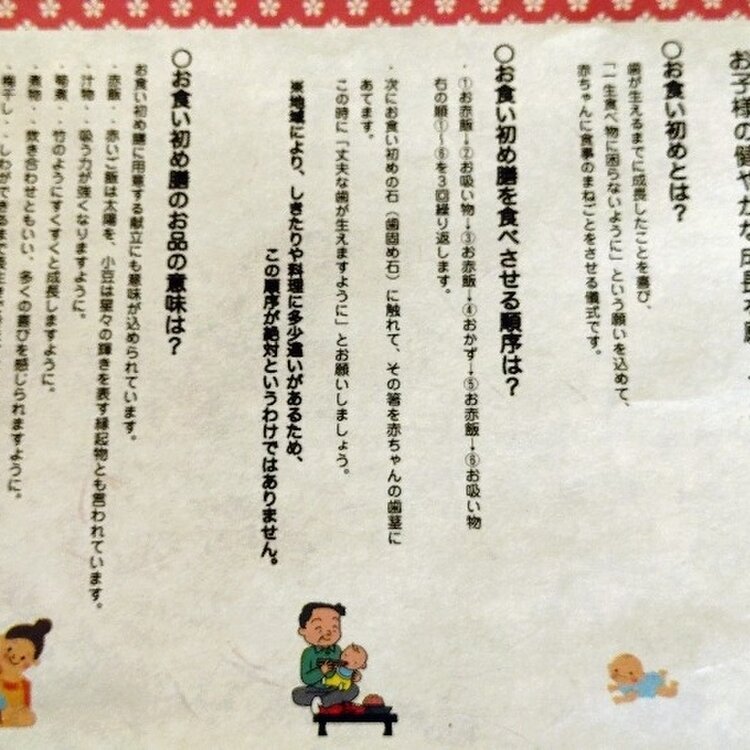 お子様の健やかな成長を願
〇お食い初めとは？
歯が生えるまでに成長したことを喜び、
「一生食べ物に困らないように」という願いを込めて、
赤ちゃんに食事のまねごとをさせる儀式です。
〇お食い初め膳を食べさせる順序は？
・①お赤飯→②お吸い物→③お赤飯→④おかず→⑤お赤飯→⑥お吸い物
右の順①～⑥を３回繰り返します。
・次にお食い初めの石（歯固め石）に触れて、その箸を赤ちゃんの歯茎に
あてます。
この時に「丈夫な歯が生えますように」とお願いしましょう。
※地域により、しきたりや料理に多少違いがあるため、
この順序が絶対というわけではありません。
〇お食い初め膳のお品の意味は？
お食い初め膳に用意する献立にも意味が込められています。
・赤飯・・赤いご飯は太陽を、小豆は星々の輝きを表す縁起物とも言われています。
・汁物・・吸う力が強くなりますように。
・筍煮・・竹のようにすくすくと成長しますように。
・煮物・・炊き合わせともいい、多くの喜びを感じられますように。
・梅干し・・しわができるまで